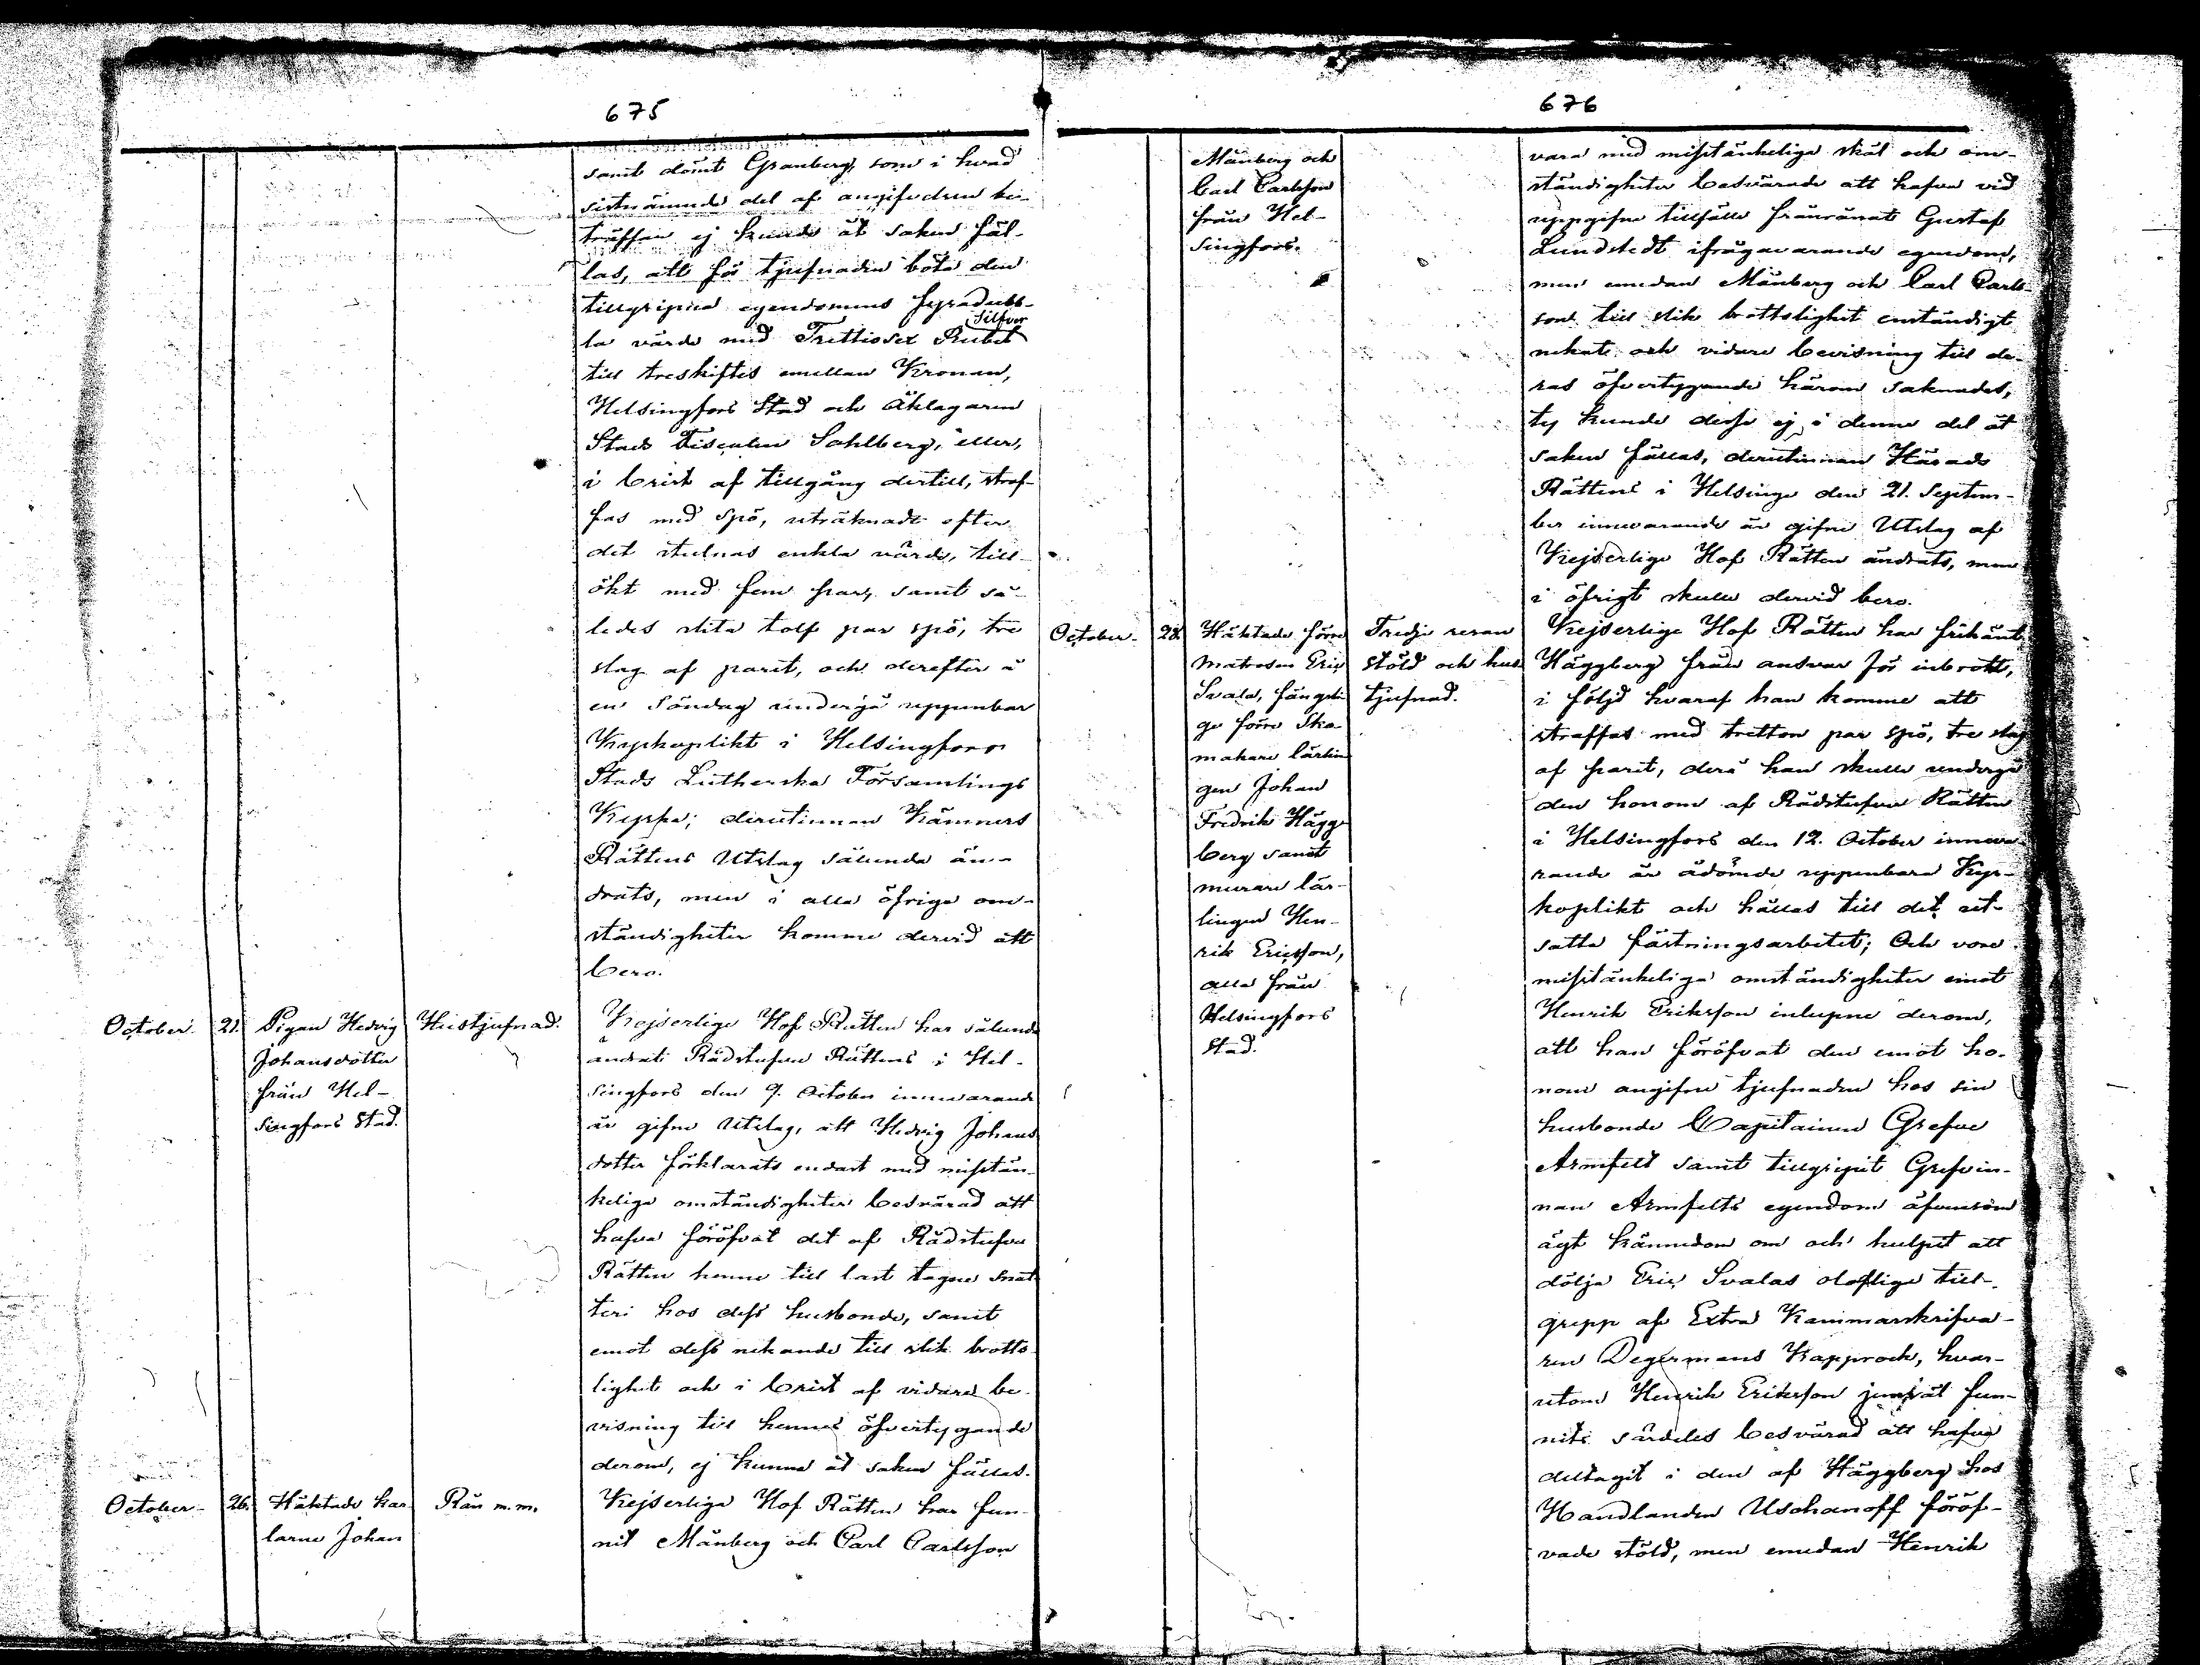 675
samt dömt Granberg, som i hvad
sistnämnde del af angifvelsen be-
träffar ej kunde åt saken fäl-
las, att för tjufnaden böta den
tillgripna egendomens fyradubb-
Silfver
la värde med Trettiosex Rubel
till treskiftes emellan Kronan,
Helsingfors Stad och Åklagaren
Stads Fiscalen Sahlberg, eller,
i brist af tillgång dertill, straf-
fas med spö, uträknadt efter
det stulnas enkla värde, till-
ökt med fem par, samt så-
ledes slita tolf par spö, tre
slag af parit, och derefter å
en Söndag undergå uppenbar
Kyrkoplikt i Helsingfors
Stads Lutherska Församlings
Kyrka; derutinnan Kämners
Rättens Utslag sålunda än-
drats, men i alla öfriga om-
ständigheter komme dervid att
bero.
October. 21. Pigan Hedvig
Johansdotter
från Hel-
singfors Stad.
Hustjufnad.
Kejserlige Hof Rätten har sålunda
ändrat Rådstufvu Rättens i Hel-
singfors den 9. October innevarande
år gifne Utslag, att Hedvig Johans
dotter förklarats endast med misstän-
kelige omständigheter besvärad att
hafva föröfvat det af Rådstufvu
Rätten henne till last tagne snat
teri hos dess husbonde, samt
emot dess nekande till slik brotts-
lighet och i brist af vidare be-
visning till hennes öfvertygande
derom, ej kunna åt saken fällas.
October- 26. Häktade kar
larne Johan
Rån m.m.
Kejserlige Hof Rätten har fun-
nit Månberg och Carl Carlsson
676
Månberg och
Carl Carlsson
från Hel-
singfors.
vara med misstänkeliga skäl och om-
ständigheter besvärade att hafva vid
uppgifne tillfälle frånrånat Gustaf
Lundstedt ifrågavarande egendom,
men emedan Månberg och Carl Carls-
son till slik brottslighet enständigt
nekat och vidare bevisning till de-
ras öfvertygande härom saknades,
ty kunde desse ej i denne del åt
saken fällas, derutinnan Härads
Rättens i Helsinge den 21. Septem-
ber innevarande år gifne Utslag af
Kejserlige Hof Rätten ändrats, men
i öfrigt skulle dervid bero.
October- 28. Häktade förre
Matrosen Eric
Svala, fångsli
ge förre Sko-
makare lärlin
gen Johan
Fredrik Hägg
berg samt
murare lär-
lingen Hen-
rik Ericsson,
alla från
Helsingfors
Stad.
Tredje resan
stöld och hus
tjufnad.
Kejserlige Hof Rätten har frikänt
Häggberg från ansvar för inbrott,
i följd hvaraf han komme att
straffas med tretton par spö, tre slag
af parit, derå han skulle undergå
den honom af Rådstufvu Rätten
i Helsingfors den 12. October inneva-
rande år ådömde uppenbara Kyr-
koplikt och hållas till det ut-
satta fästningsarbetet; Och vore
misstänkeliga omständigheter emot
Henrik Eriksson inlupne derom,
att han föröfvat den emot ho-
nom angifne tjufnaden hos sin
husbonde Capitainen Grefve
Armfelt samt tillgripit Grefvin-
nan Armfelts egendom äfvensom
ägt kännedom om och hulpit att
dölja Eric Svalas olaflige till-
grepp af Extra Kammarskrifva-
ren Degermans Kapprock, hvar-
utom Henrik Eriksson jemväl fun-
nits särdeles besvärad att hafva
deltagit i den af Häggberg hos
Handlanden Uschanoff föröf-
vade stöld, men emedan Henrik